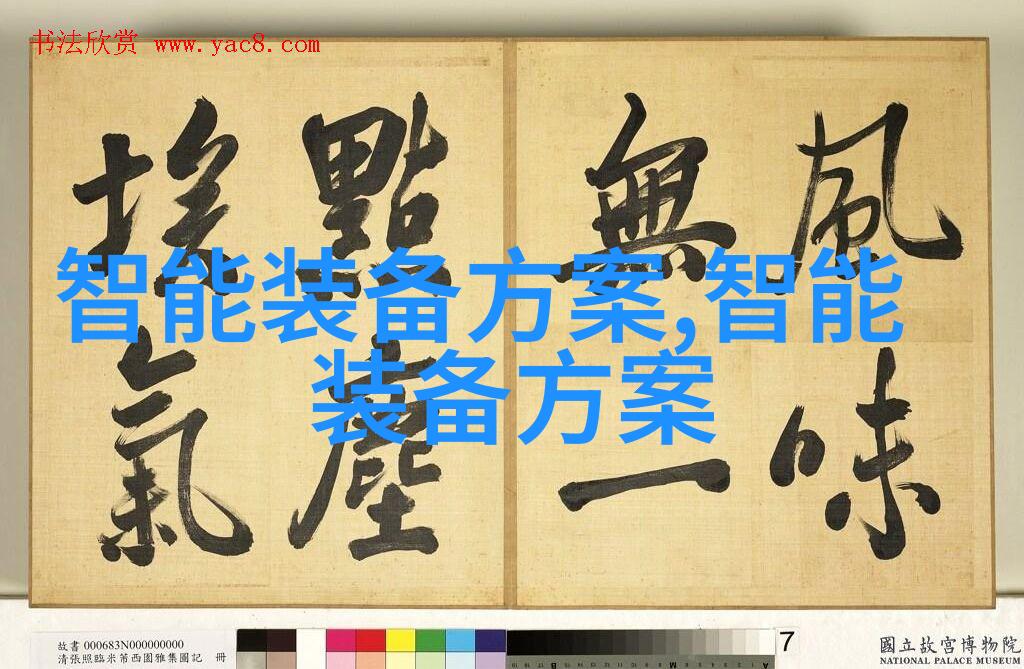 书法欣赏 www.yac8.com
風味
無一
點塵
埃氣
智能装备方案,智能
装备方案
故書 000683N000000000
清張照臨米芾西園雅集圖記 冊
7
國立故宮博物院
NATIONAL PALACE MUSEUM